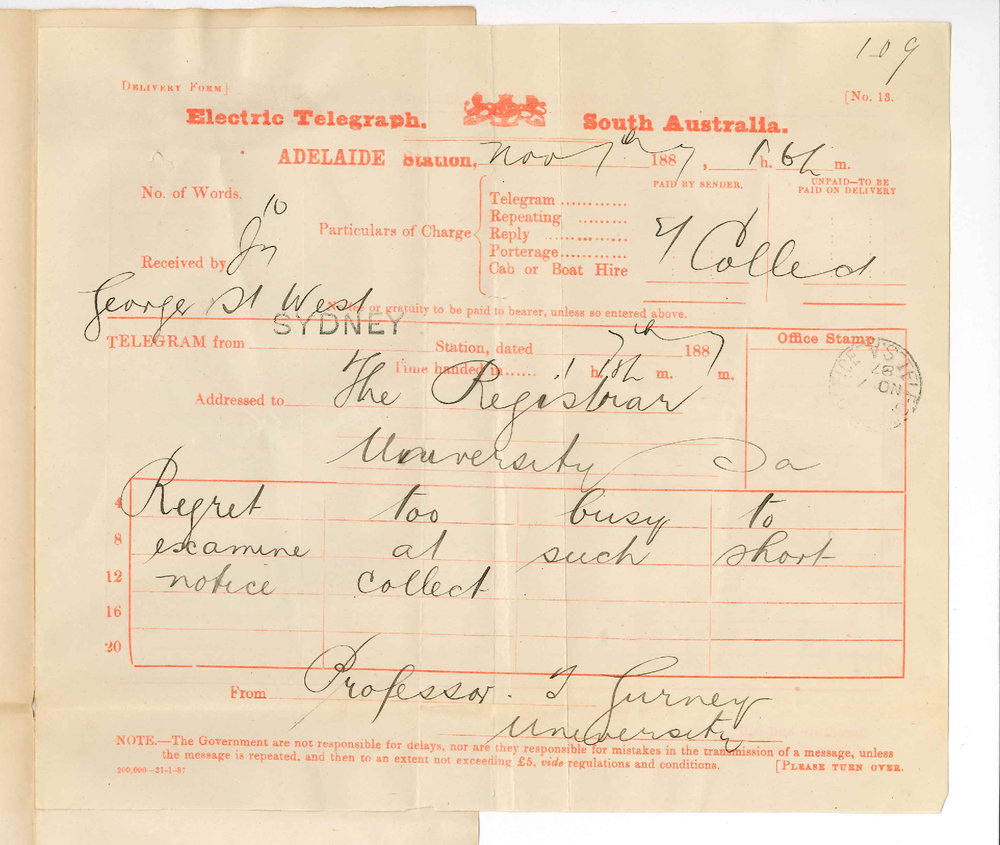 109
DELIVERY FORM]
[No. 13.
Electric Telegraph. South Australia.
ADELAIDE Station, Nov 7th 1887, 1 h. m.
No. of Words.
10
PAID BY SENDER.
UNPAID—TO BE PAID ON DELIVERY
Particulars of Charge
Telegram
Repeating
Reply
Porterage
Cab or Boat Hire
Collect
Received by
George St West
No fee or gratuity to be paid to bearer, unless so entered above.
SYDNEY
TELEGRAM from Station, dated 7th 1887
Time handed in 1 h. m. m.
Office Stamp
NO 7
87
S.A
Addressed to The Registrar
University
4 Regret too busy to
8 examine at such short
12 notice collect
16
20
From Professor. T Gurney
University
NOTE.—The Government are not responsible for delays, nor are they responsible for mistakes in the transmission of a message, unless
the message is repeated, and then to an extent not exceeding £5, vide regulations and conditions. [PLEASE TURN OVER.
200,000—31-1-87